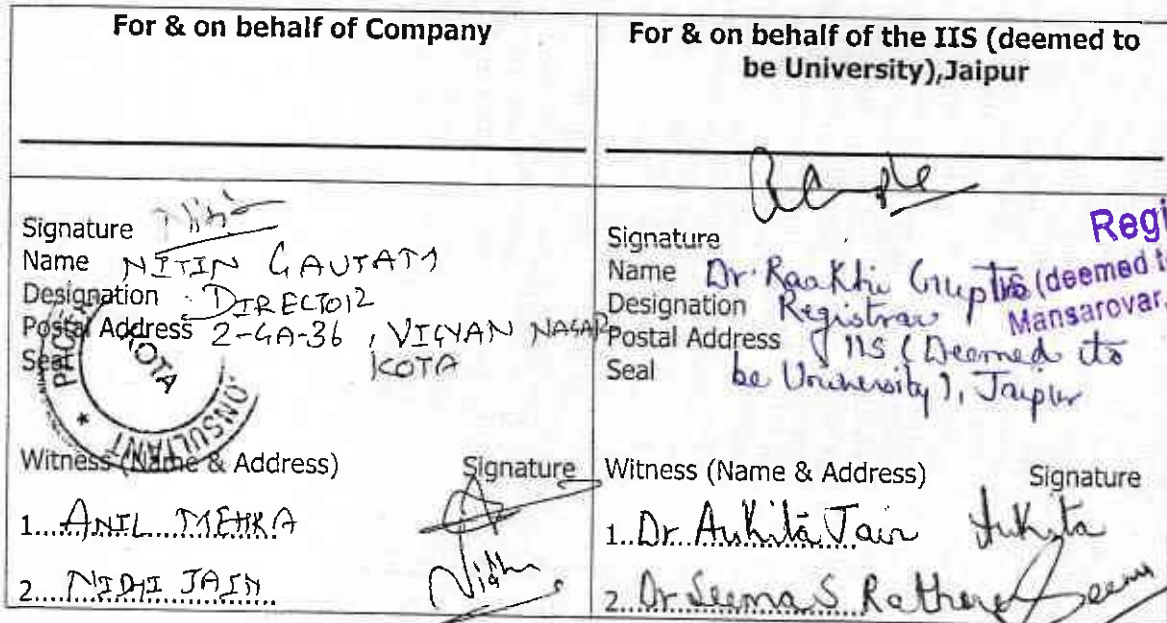 For & on behalf of Company
Signature
Name NITIN GAUTAM
Designation DIRECTOR
Postal Address 2-GA-36, VIGYAN NAGAR
KOTA
Seal
KOTA
CONSULTANT
Witness (Name & Address) Signature
1....ANIL MEHRA
2....NIDHI JAIN Nidhi
For & on behalf of the IIS (deemed to
be University),Jaipur
Signature
Name Dr. Raakhi Gupta
Designation Registrar
Postal Address IIS (Deemed to
Seal be University), Jaipur
Regi
IIS (deemed to
Mansarovar,
Witness (Name & Address) Signature
1..Dr. Ankita Jain Ankita
2...Dr Seema S. Rathore Seema